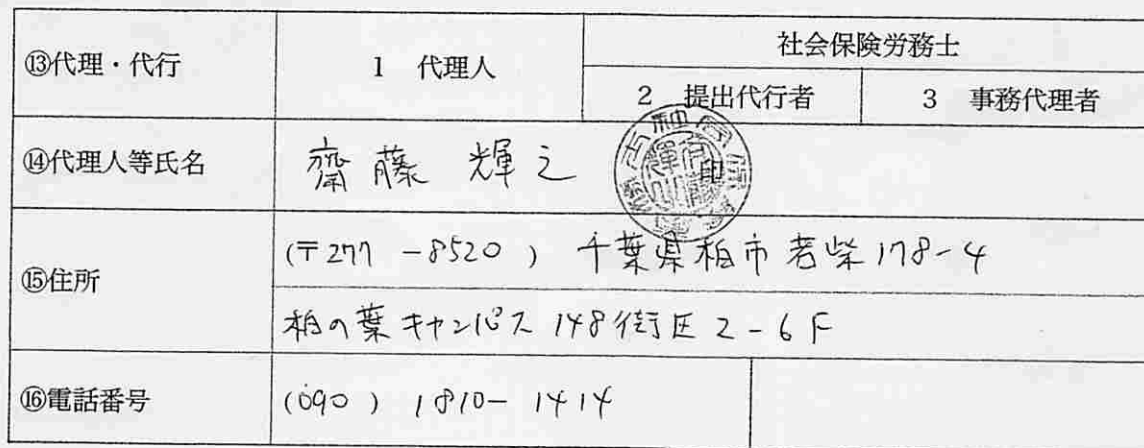 ⑬代理・代行 1 代理人 社会保険労務士
2 提出代行者 3 事務代理者
⑭代理人等氏名 齋藤 輝之 印
⑮住所 (〒277-8520) 千葉県柏市若柴178-4
柏の葉キャンパス148街区2-6F
⑯電話番号 (090) 1810-1414